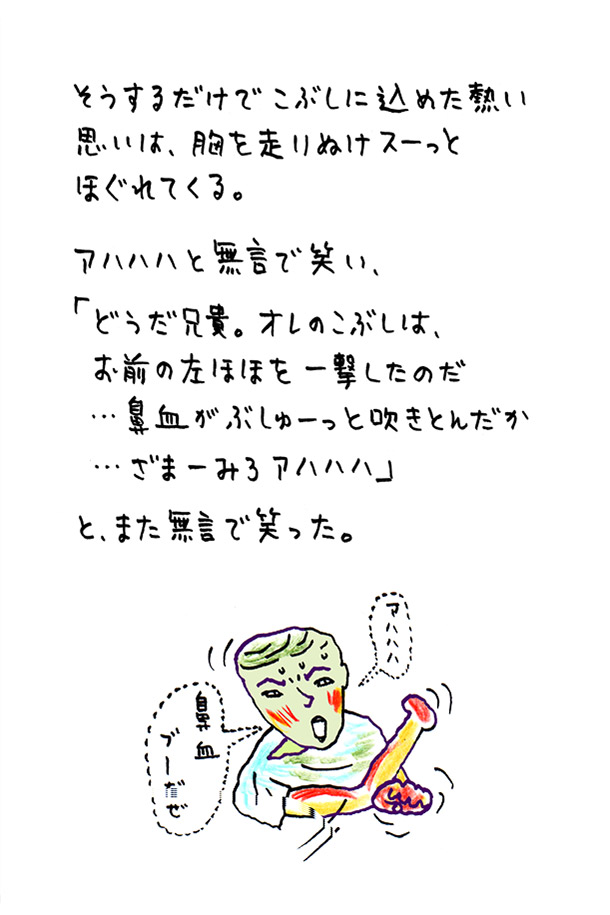 そうするだけでこぶしに込めた熱い
思いは、胸を走りぬけスーっと
ほぐれてくる。
アハハハと無言で笑い、
「どうだ兄貴。オレのこぶしは、
お前の左ほほを一撃したのだ
…鼻血がぶしゅーっと吹きとんだか
…ざまーみろアハハハ」
と、また無言で笑った。
アハハハ
鼻血
ブーだぜ